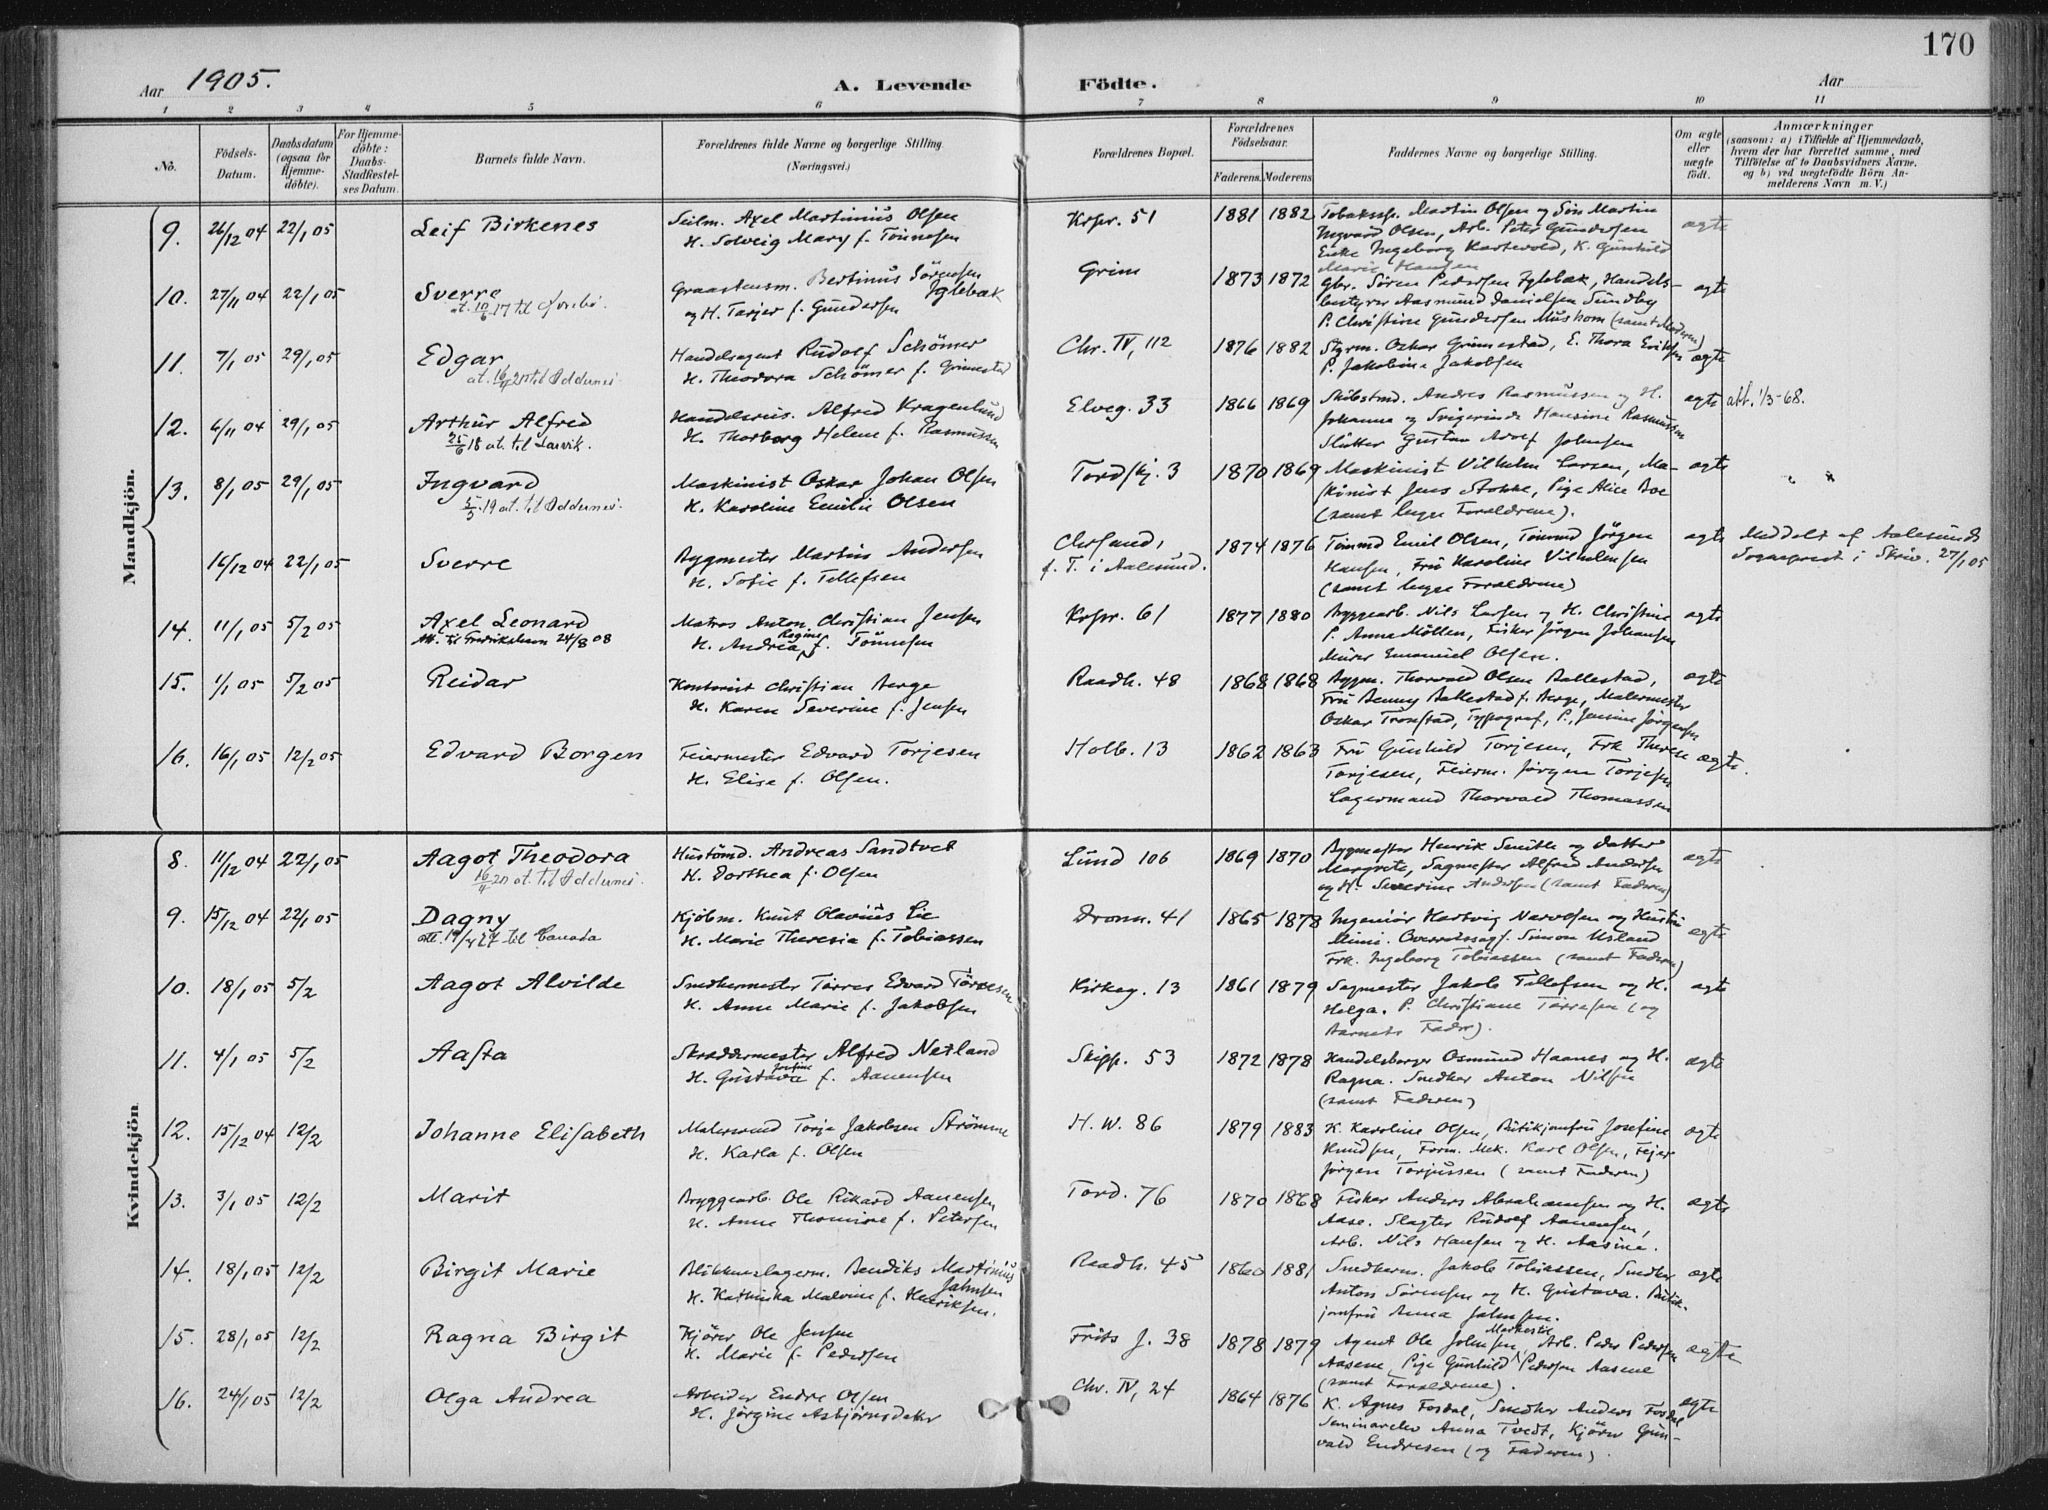 170
Aar 1905. A. Levende Födte. Aar
1 2 3 4 5 6 7 8 9 10 11
No. Födsels-Datum. Daabsdatum (ogsaa for Hjemme-döbte). For Hjemme-döbte: Daabs-Stadfæstel-ses Datum. Barnets fulde Navn. Forældrenes fulde Navne og borgerlige Stilling. (Næringsvei.) Forældrenes Bopæl. Forældrenes Födselsaar. Faderens. Moderens. Faddernes Navne og borgerlige Stilling. Om ægte eller uægte födt. Anmærkninger (saasom: a) i Tilfælde af Hjemmedaab, hvem der har forrettet samme, med Tilföielse af to Daabsvidners Navne. og b) ved uægtefödte Börn An-melderens Navn m. V.)
Mandkjön.
9. 26/12 04 22/1 05 Leif Birkenes Seilm. Axel Martinius Olsen Krpr. 51 1881 1882 Tobakssp. Martin Olsen og Søn Martin ægte
H. Solveig Mary f. Tönnesen Ingvard Olsen, Arb. Peter Gundersen
Enke Ingeborg Hartevold, K. Gunhild
Marie Hansen
10. 27/11 04 22/1 05 Sverre Graastensm. Bertinus Sörensen Grim 1873 1872 Gbr. Sören Pedersen Fglebæk, Handels- ægte
at. 10/6 17 til Fglebæk
og H. Tarjer f. Gundersen bestyrer Aasmund Danielsen Sundby
P. Christine Gundersen (samt Moderen)
11. 7/1 05 29/1 05 Edgar Handelsagent Rudolf Schömer Chr. IV, 112 1876 1882 Styrm. Oskar Grimestad, E. Thora Eriksen ægte
at. 16/4 20 til Oddernes. H. Theodora Schömer f. Grimestad P. Jakobine Jakobsen
12. 6/11 04 29/1 05 Arthur Alfred Handelsreis. Alfred Kragenlund Elveg. 33 1866 1869 Skibstmd. Andres Rasmussen og H. ægte att. 1/3-68.
25/6 18 at. til Larvik. H. Thorborg Helene f. Rasmussen Johanna og Svigerinde Hansine Rasmussen
Slutter Gustav Adolf Johnsen
13. 8/1 05 29/1 05 Ingvard Maskinist Oskar Johan Olsen Tordskj. 3 1870 1869 Maskinist Vilhelm Larsen, Ma- ægte
5/5 19 at. til Oddernes. H. Karoline Emilie Olsen skinist Jens Stokke, Pige Alice Boe
(samt begge Forældrene).
16/12 04 22/1 05 Sverre Bygmester Martin Andersen Chrsand, 1874 1876 Tömmd Emil Olsen, Tömmd Jörgen ægte Meddelt af Aalesunds
H. Sofie f. Tellefsen f. T. i Aalesund. Hansen, Fru Karoline Vilhelmsen Sogneprest i Skriv. 27/1 05
(samt begge Forældrene)
14. 11/1 05 5/2 05 Axel Leonard Matros Anton Christian Jensen Krpr. 61 1877 1880 Byggearb. Nils Larsen og H. Christine ægte
Att. til Fredrikshavn 24/8 08 H. Andrea Regine f. Tönnesen P. Anna Möllen, Fisker Jörgen Johansen
Murer Emanuel Olsen.
15. 1/1 05 5/2 05 Reidar Kontorist Christian Berge Raadh. 48 1868 1868 Bygm. Thorvald Olsen Ballestad, ægte
H. Karen Severine f. Jensen Fru Benny Ballestad f. Berge, Malermester
Oskar Tronstad, Typograf, P. Jensine Jörgensen
16. 16/1 05 12/2 05 Edvard Borgen Feiermester Edvard Torjesen Holb. 13 1862 1863 Fru Gunhild Torjesen, Frk Therese ægte.
H. Elise f. Olsen. Torjesen, Feierm. Jörgen Torjesen
Lagermand Thorvald Thomassen
Kvindekjön
8. 11/12 04 22/1 05 Aagot Theodora Hustömd. Andreas Sandtvet Lund 106 1869 1870 Bygmester Henrik Smith og Datter ægte
16/4 20 at. til Oddernes. H. Dorthea f. Olsen Margrete, Sagmester Alfred Andersen
og H. Severine Andersen (samt Faderen)
9. 15/12 04 22/1 05 Dagny Kjöbm. Knut Olavius Lie Dronn. 41 1865 1878 Ingeniör Hartvig Narvesen og Hustru ægte
att. 19/4 27 til Canada H. Marie Theresia f. Tobiassen Mimi. Overretssagf. Simon Usland
Frk. Ingeborg Tobiassen (samt Faderen)
10. 18/1 05 5/2 Aagot Alvilde Snedkermester Törres Edvard Törresen Kirkeg. 13 1861 1879 Sagmester Jakob Tellefsen og H. ægte
H. Anne Marie f. Jakobsen Helga. P. Christiane Törresen (og
Barnets Fader).
11. 4/1 05 5/2 Aasta Skræddermester Alfred Netland Skipp. 53 1872 1878 Handelsborger Osmund Haanes og H. ægte
H. Gustava f. Aanensen Ragna. Snedker Anton Nilsen
(samt Faderen)
12. 15/12 04 12/2 Johanne Elisabeth Malersvend Torje Jakobsen Strömme H. W. 86 1879 1883 K. Karoline Olsen, Butikjomfru Josefine ægte
H. Karla f. Olsen Knudsen, Form. Mek. Karl Olsen, Fejer
Jörgen Torjussen (samt Faderen)
13. 3/1 05 12/2 Marit Byggearb. Ole Rikard Aanensen Tord. 76 1870 1868 Fisker Anders Abrahamsen og H. ægte
H. Anne Thomine f. Petersen Aase. Slagter Rudolf Aanensen,
Arb. Nils Hansen og H. Aasine.
14. 18/1 05 12/2 Birgit Marie Blikkenslagerm. Bendiks Martinius Raadh. 45 1860 1881 Snedkerm. Jakob Tobiassen, Snedker ægte
Jahnsen
H. Kathinka Malvine f. Henriksen. Anton Sörensen og H. Gustava. Butik-
jomfru Anna Jahnsen.
15. 28/1 05 12/2 Ragna Birgit Kjörer Ole Jensen Frits J. 38 1878 1879 Agent Ole Johnsen, Arb. Peder Pedersen ægte
H. Marie f. Pedersen Aasene, Pige Gunhild Pedersen Aasene
(samt Forældrene).
16. 24/1 05 12/2 Olga Andrea Arbeider Endre Olsen Chr. IV, 24 1864 1876 K. Agnes Fosdal, Snedker Anders Fosdal ægte
H. Jörgine Asbjörnsdatter Seminarelev Anna Tvedt, Kjörer Gun-
vald Endresen (og Faderen).